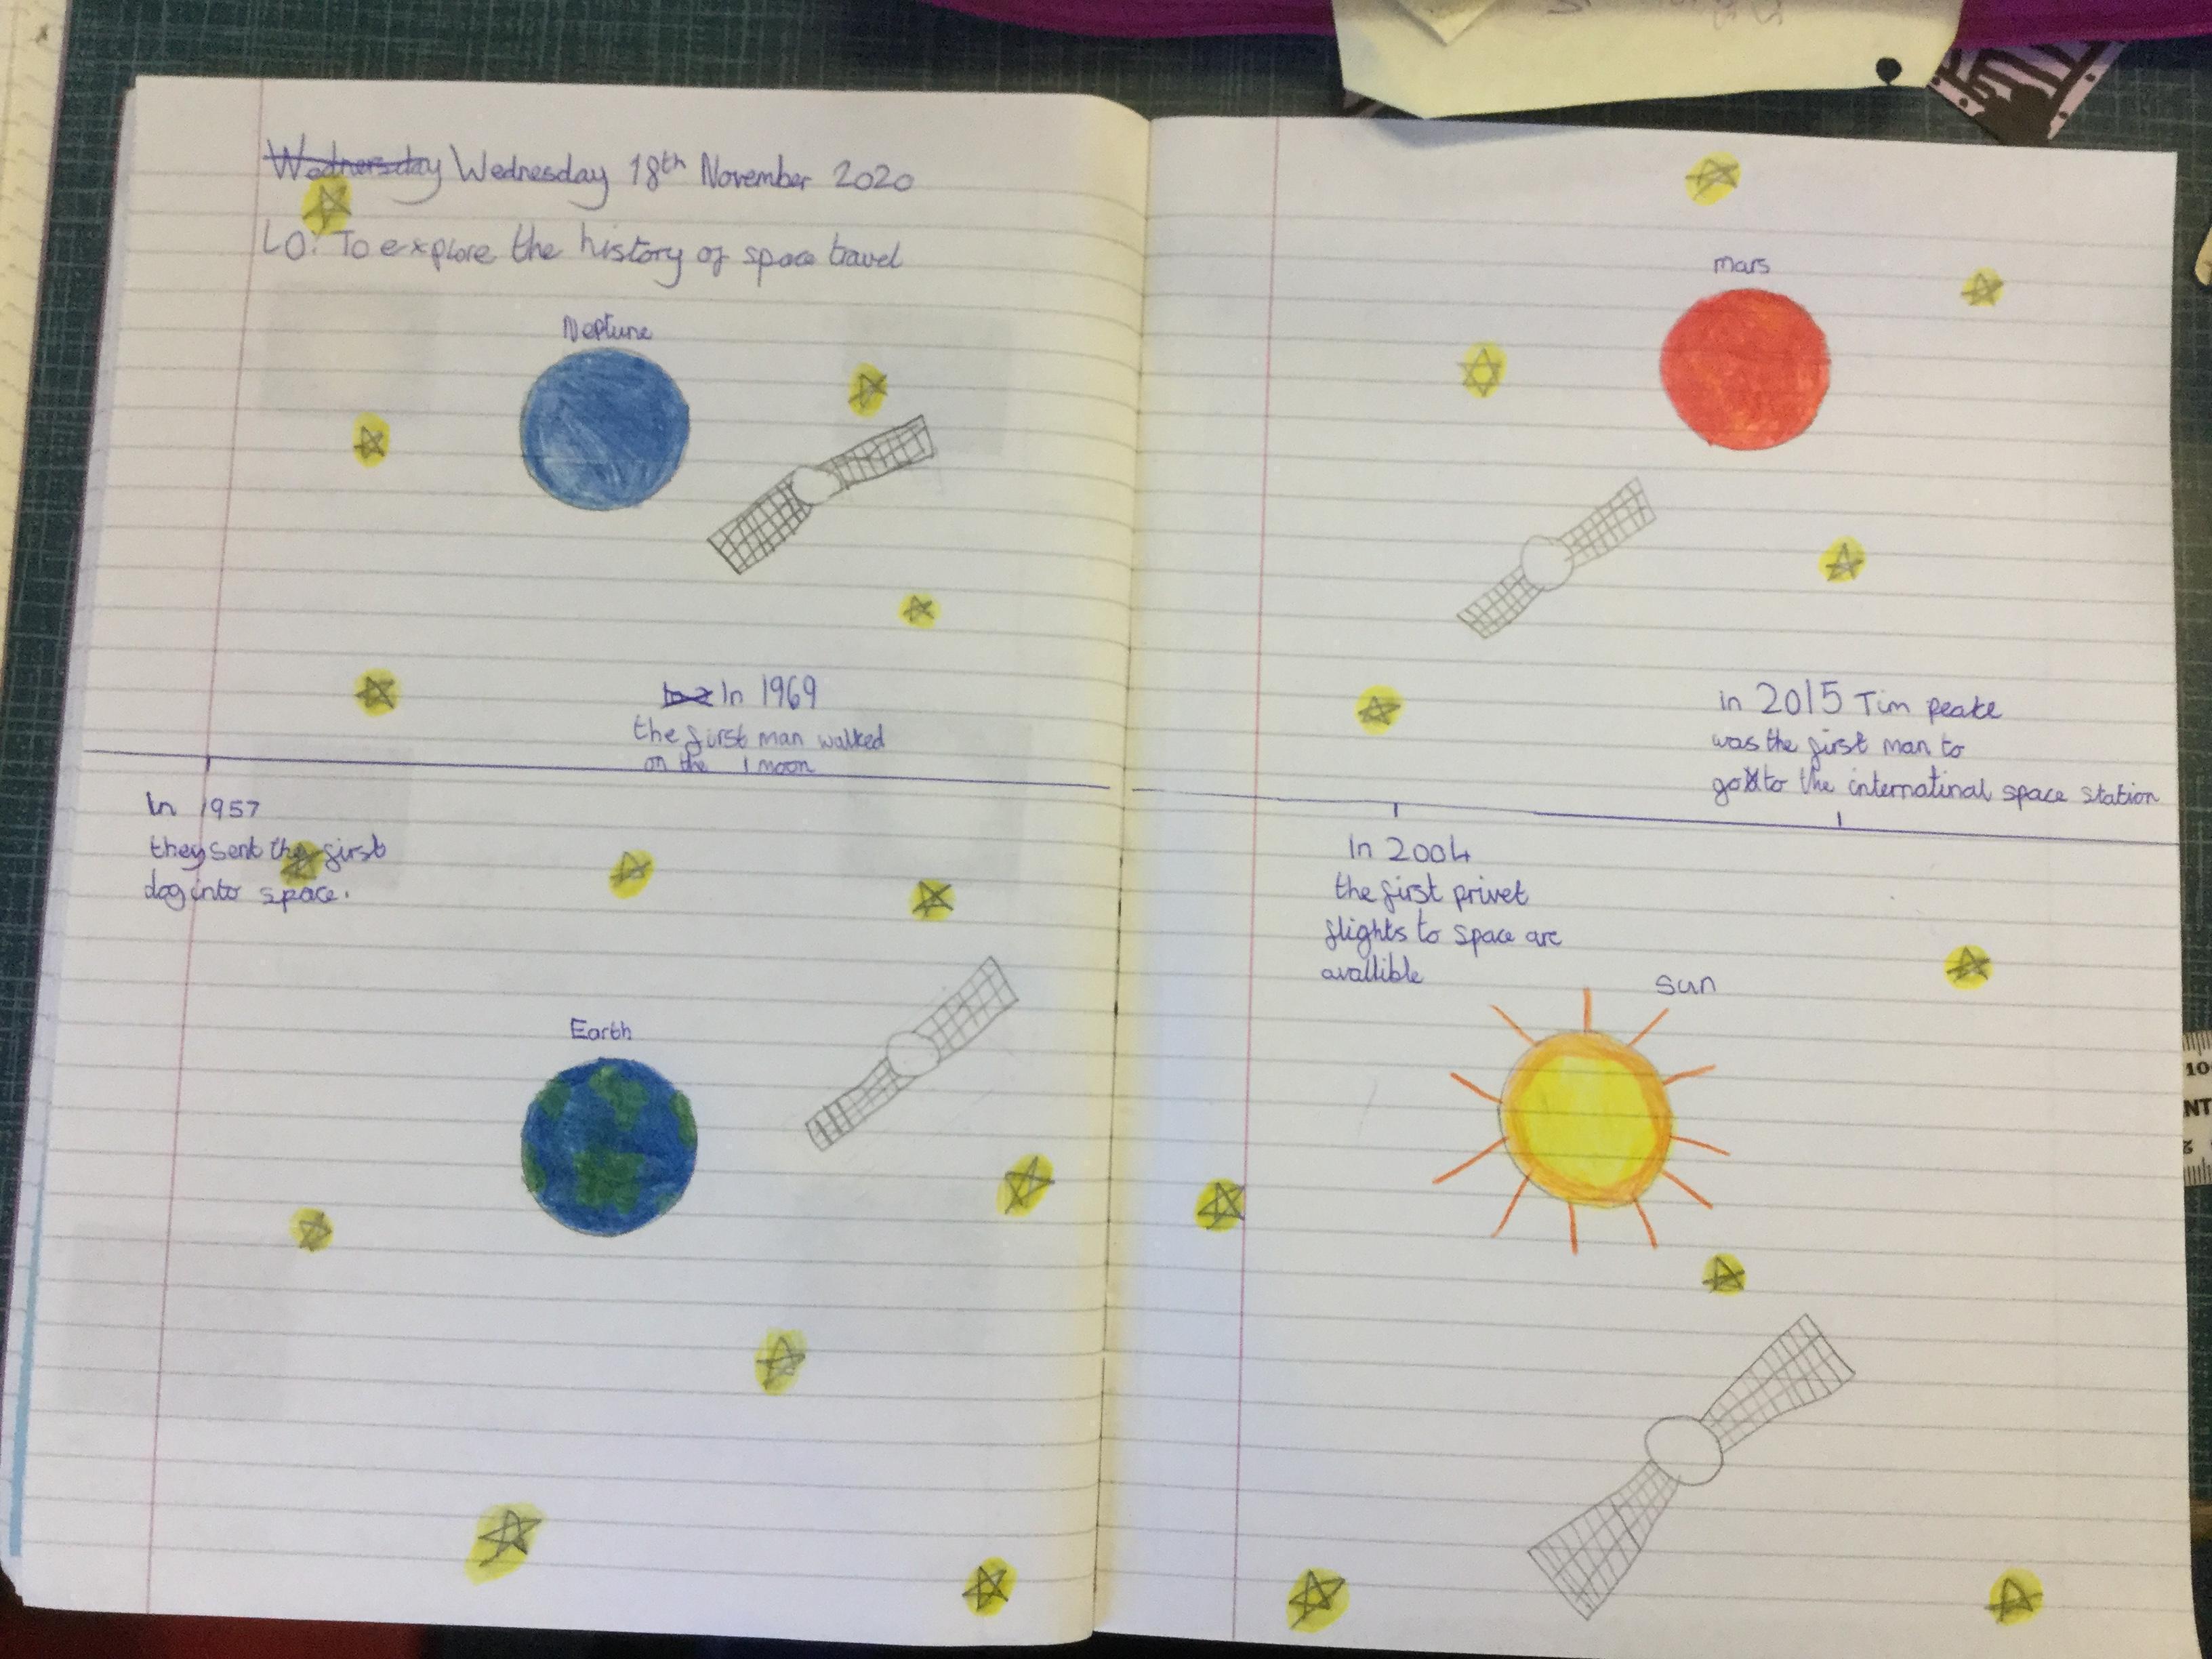 Wednersday Wednesday 18th November 2020
LO: To explore the history of space travel
Neptune
In 1969
the first man walked
on the moon
In 1957
they sent the first
dog into space.
Earth
Mars
in 2015 Tim peake
was the first man to
go to the internatinal space station
In 2004
the first privet
flights to space are
avallible
sun
10
NT